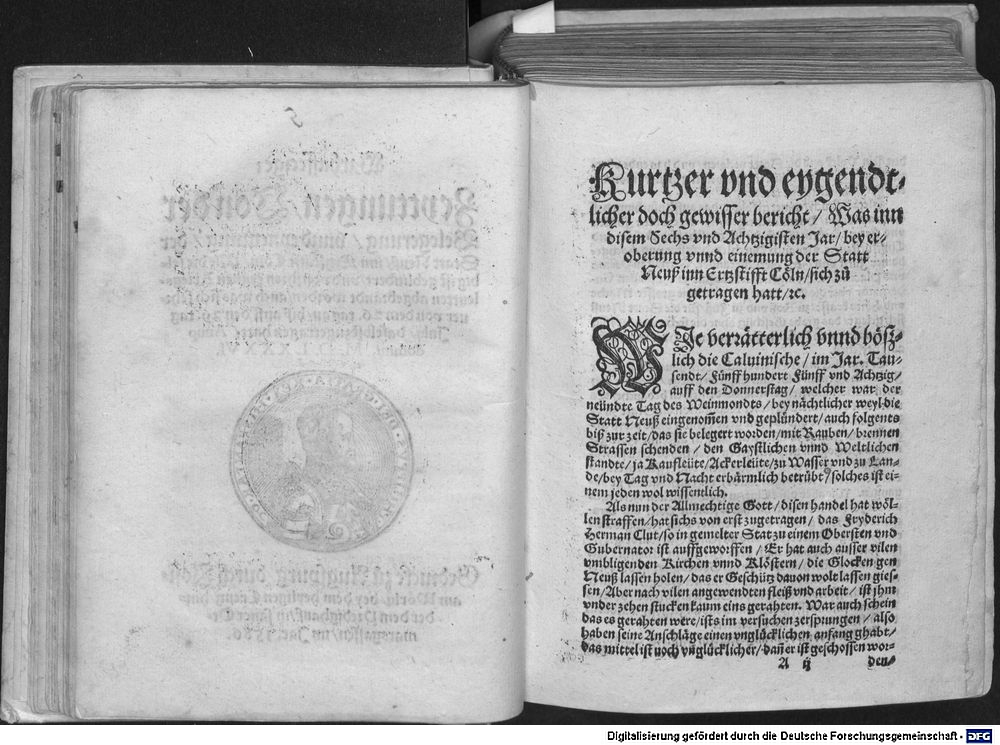 5
Kurtzer vnd eygendt-
licher doch gewisser bericht / Was inn
disem Sechs vnd Achtzigisten Jar / bey er-
oberung vnnd einemung der Statt
Neuß inn Ertzstifft Cöln / sich zů
getragen hatt / ⁊c.
WJe verrätterlich vnnd bößz-
lich die Caluinische / im Jar. Tau-
sendt / Fünff hundert Fünff vnd Achtzig /
auff den Donnerstag / welcher war der
neündte Tag des Weinmondts / bey nächtlicher weyl die
Statt Neuß eingenom̃en vnd geplündert / auch folgents
biß zur zeit / das sie belegert worden / mit Rauben / brennen
Strassen schenden / den Gaystlichen vnnd Weltlichen
standte / ja Kaufleüte / Ackerleüte / zu Wasser vnd zu Lan-
de / bey Tag vnd Nacht erbärmlich betrübt / solches ist ei-
nem jeden wol wissentlich.
Als nun der Allmechtige Gott / disen handel hat wöl-
len straffen / hat sichs von erst zugetragen / das Fryderich
Herman Clut / so in gemelter Stat zu einem Obersten vnd
Gubernator ist auffgeworffen / Er hat auch ausser vilen
vmbligenden Kirchen vnnd Klöstern / die Glocken gen
Neuß lassen holen / das er Geschütz dauon wolt lassen gies-
sen / Aber nach vilen angewendten fleiß vnd arbeit / ist jhm
vnder zehen stucken kaum eins gerahten. War auch schein
das es gerahten were / ists im versuchen zersprungen / also
haben seine Anschläge einen vnglücklichen anfang ghabt /
das mittel ist noch vnglücklicher / dañ er ist geschossen wor-
A ij den /
Digitalisierung gefördert durch die Deutsche Forschungsgemeinschaft - DFG